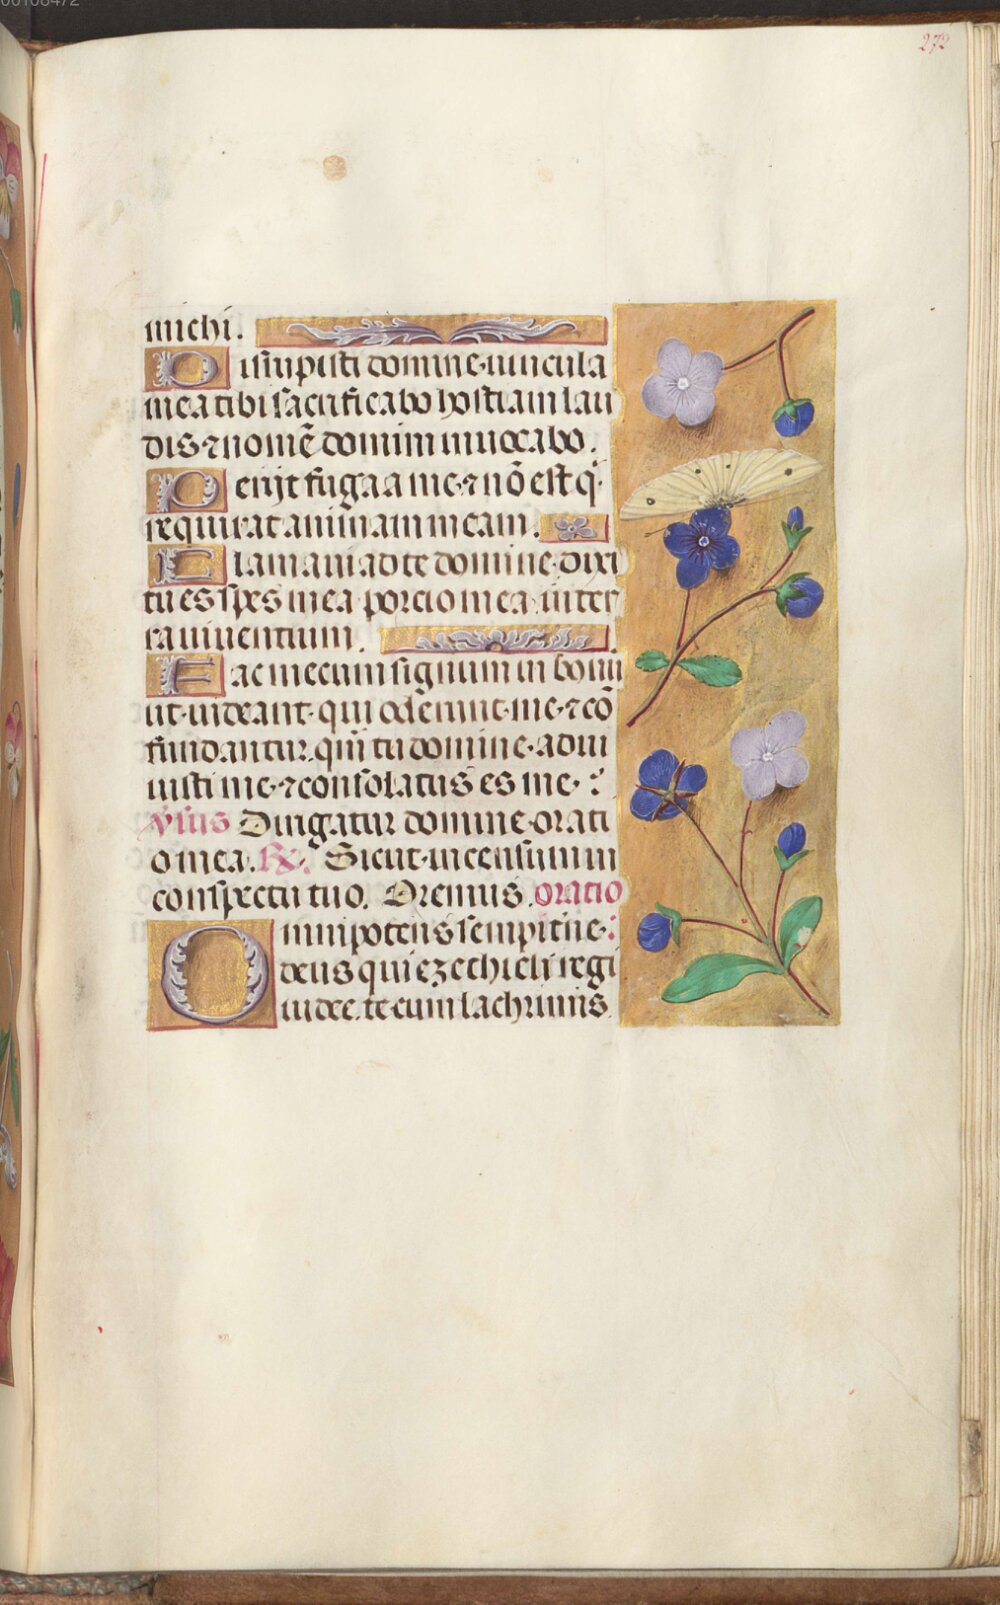 00108472
272
michi.
Disrupisti domine·vincula
mea tibi sacrificabo hostiam lau
dis·⁊ nomē domini invocabo.
Perijt fuga a me·⁊ nō est q̇
requirat animam meam.
Clamavi ad te domine·dixi
tu es spes mea·porcio mea·in ter
ra viventium.
Fac mecum signum in bonū
ut·videant·qui oderunt·me·⁊ cō
fundantur·qm̄ tu domine·adiu
visti me·⁊ consolatus es me·:
v̇sus Dirigatur domine·orati
o mea. ℟. Sicut·incensum in
conspectu tuo. Oremus. oratio
Omnipotens sempit̄ne·:
deus qui ezechieli regi
iudee·te·cum lachrimis